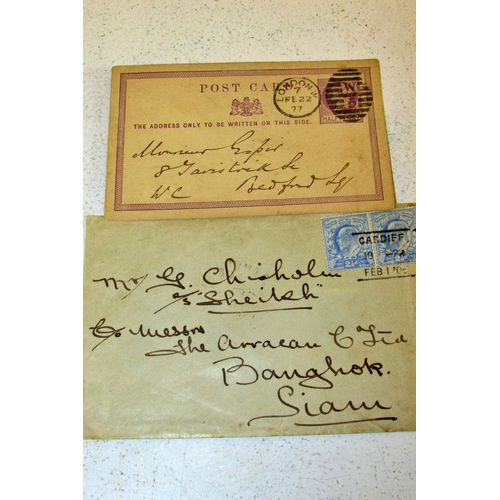 POST CARD
THE ADDRESS ONLY TO BE WRITTEN ON THIS SIDE.
LONDON W
7
FE 22
77
W
HALF
Monsieur
8 Tavistock St
WC Bedford Sq
CARDIFF
FEB 1
Mr G. Chisholm
s/s "Sheikh"
C/o Messrs
The Arracan C Ltd
Bangkok.
Siam